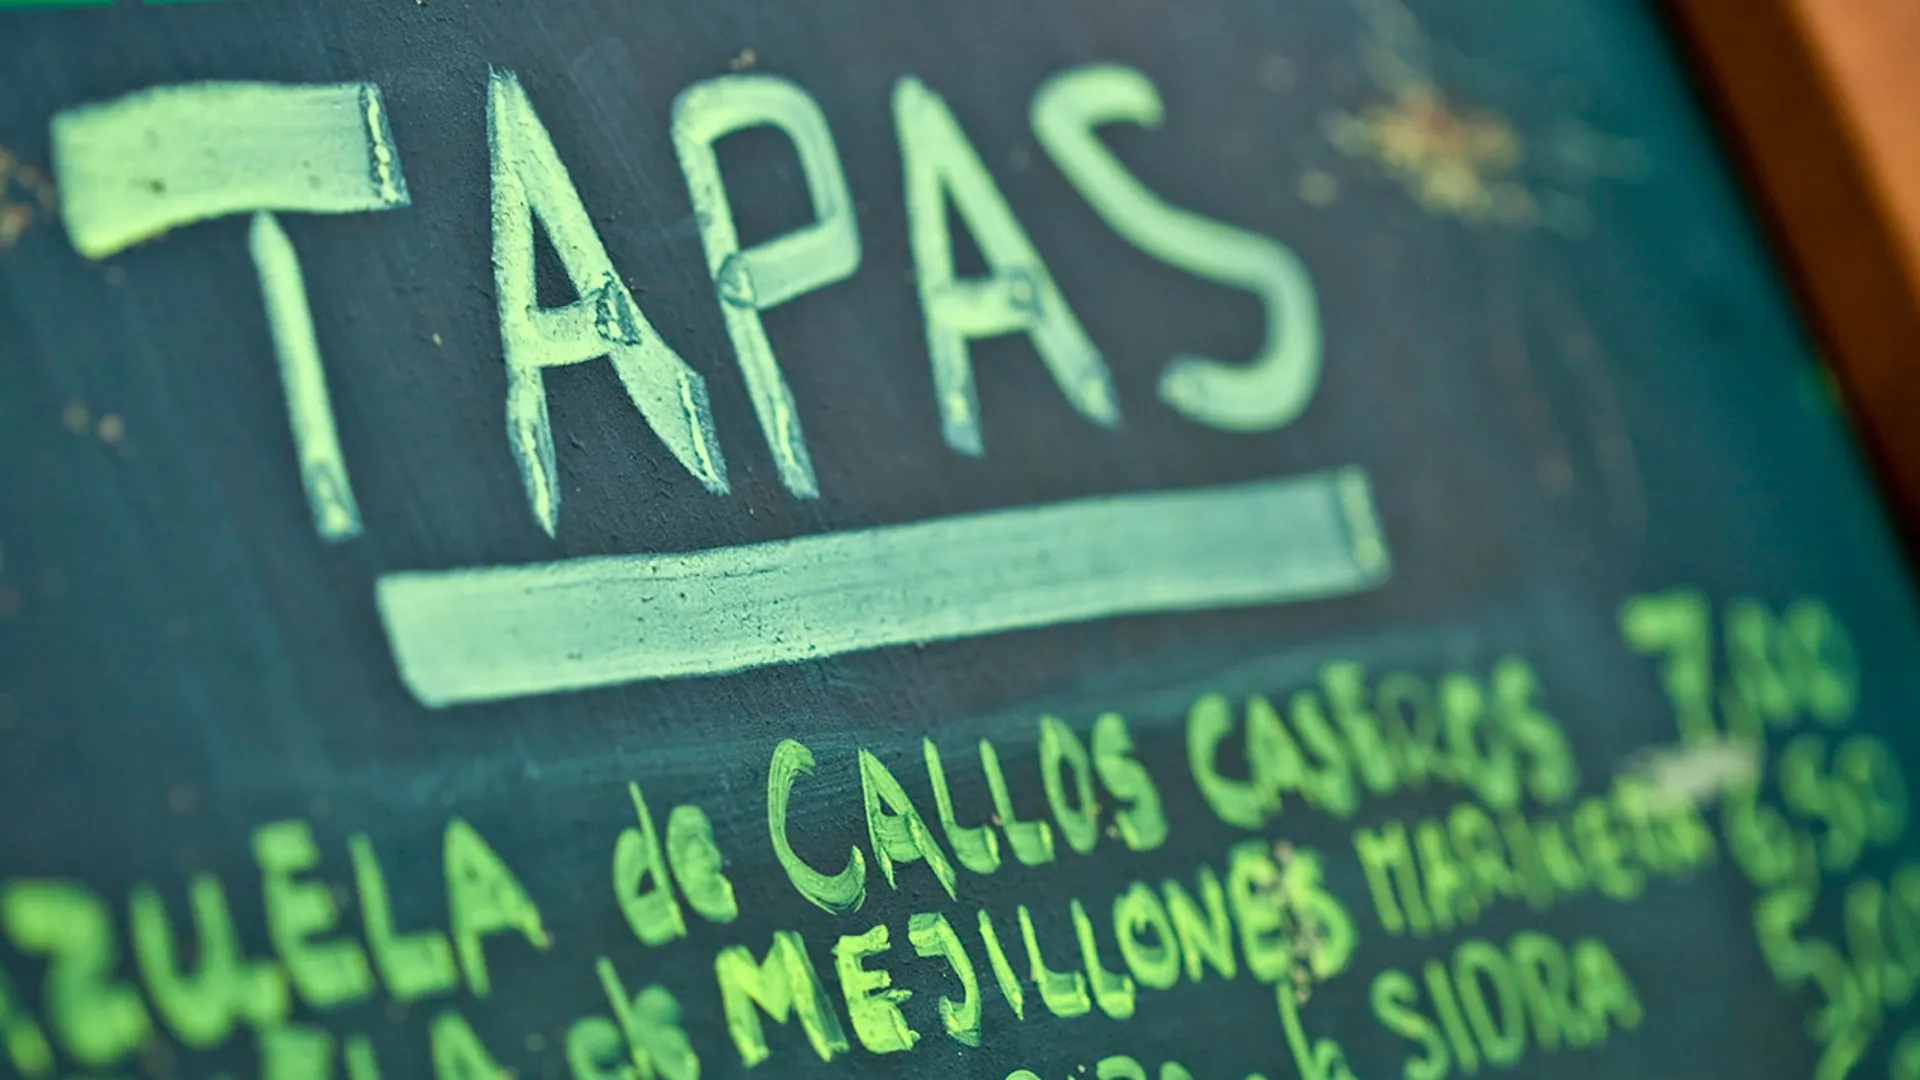 TAPAS
ZUELA de CALLOS CASEROS 7,00
ELA de MEJILLONES MARINERA 6,50
a la SIDRA 5,00